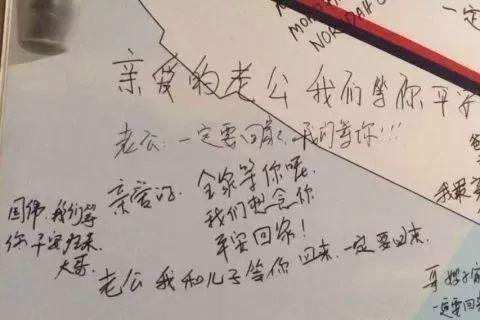 一定
亲爱的老公 我们等你平安
老公:一定要回家,我们等你!!!
亲爱的,全家等你呢,
我们想念你
平安回家!
国伟,我们等
你平安归来
大哥.
老公 我和儿子等你 回来,一定要回来.
爸
我最爱
哥 嫂子
一定要回